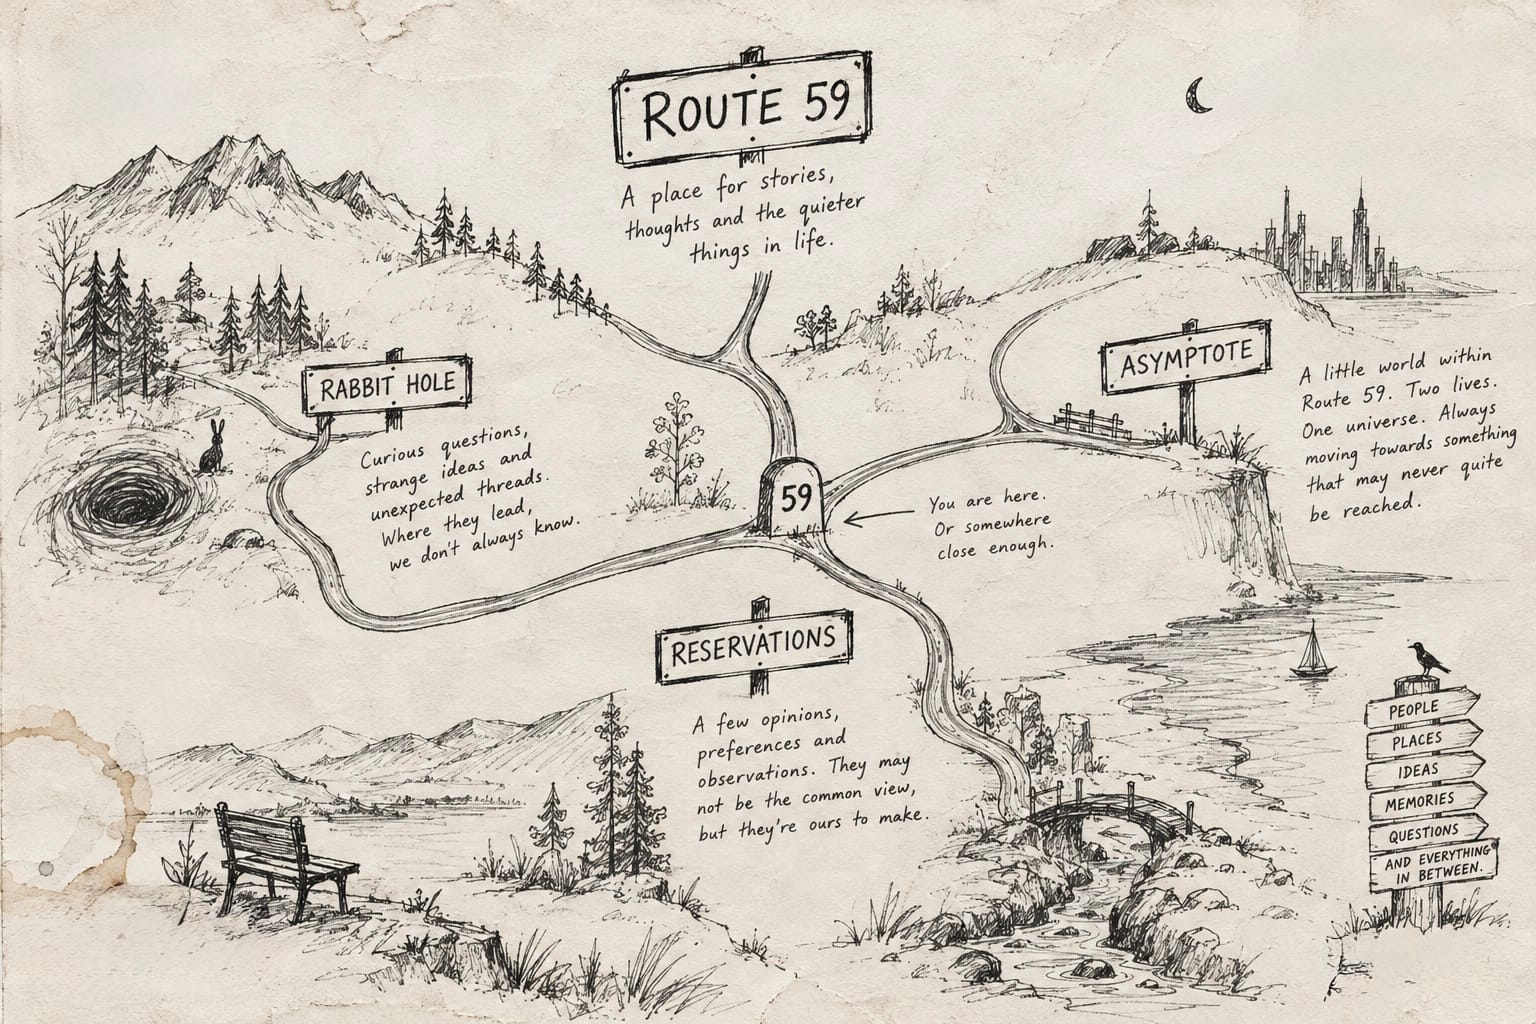 ROUTE 59
A place for stories,
thoughts and the quieter
things in life.
RABBIT HOLE
Curious questions,
strange ideas and
unexpected threads.
Where they lead,
we don't always know.
ASYMPTOTE
A little world within
Route 59. Two lives.
One universe. Always
moving towards something
that may never quite
be reached.
59
You are here.
Or somewhere
close enough.
RESERVATIONS
A few opinions,
preferences and
observations. They may
not be the common view,
but they're ours to make.
PEOPLE
PLACES
IDEAS
MEMORIES
QUESTIONS
AND EVERYTHING
IN BETWEEN.